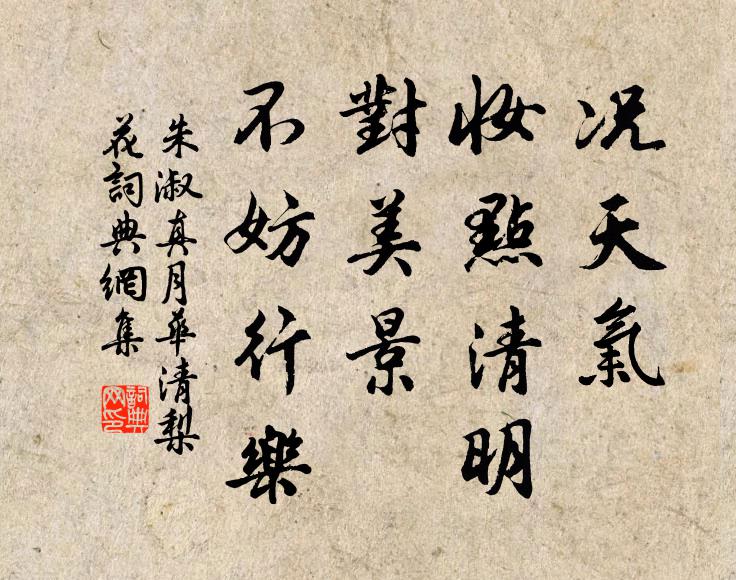 况天氣
妝點清明
對美景
不妨行樂
朱淑真月華清梨
花詞典網集
詞典
网印